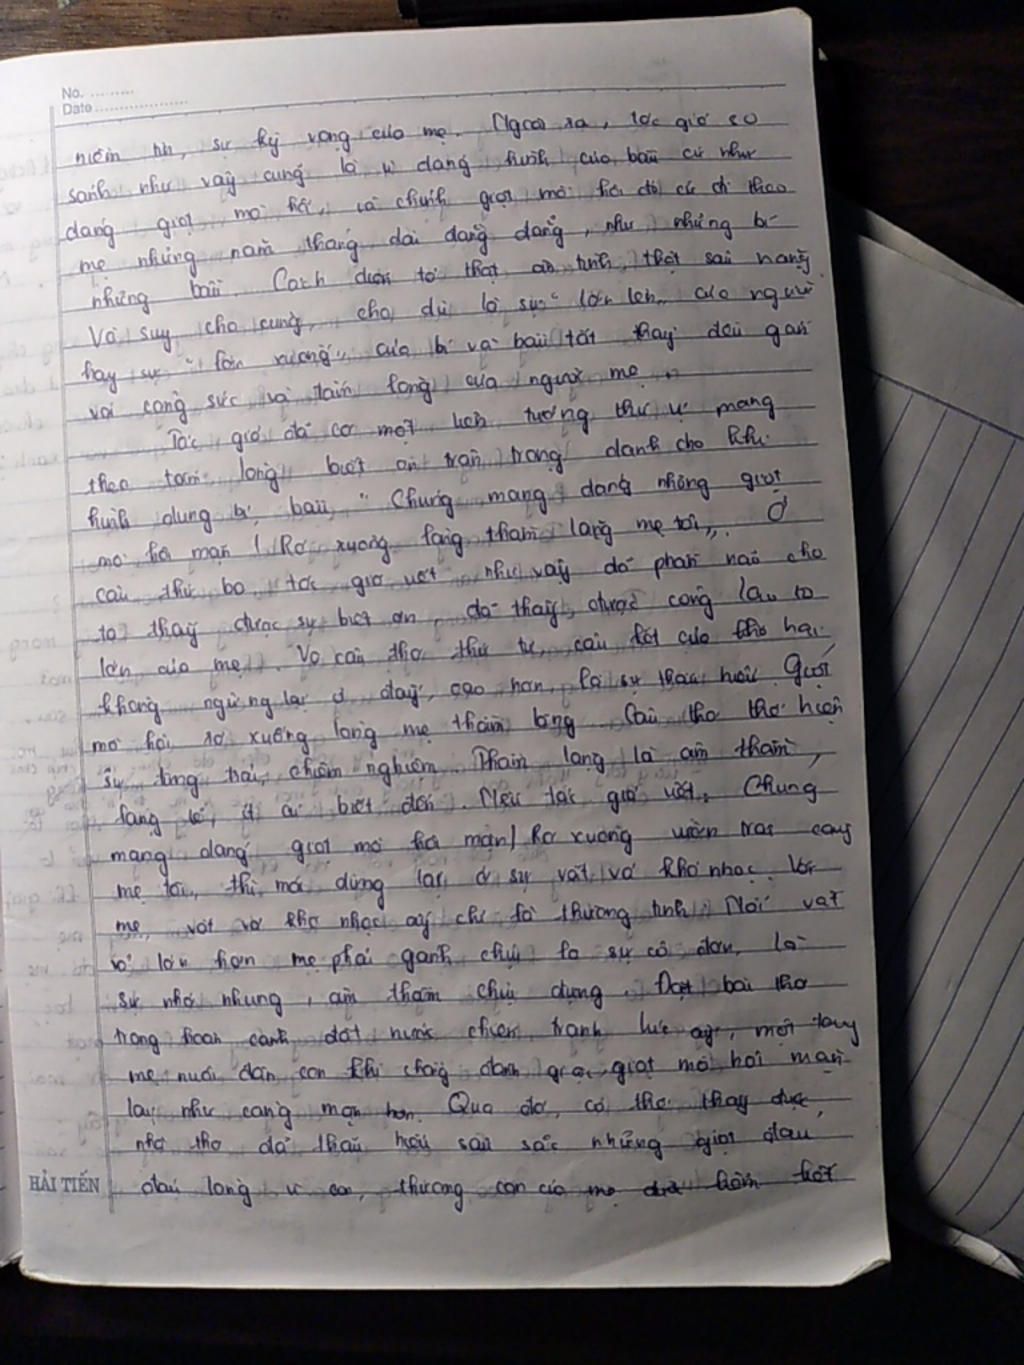 No. ........
Date ..................
niềm tin, sự kỳ vọng của mẹ. Ngoài ra, tác giả so
sánh như vậy cũng là vì dáng hình của bầu cứ như
dáng giọt mồ hôi, và chính giọt mồ hôi đó cứ đi theo
mẹ những năm tháng dài đằng đẵng, như những bí
những bầu. Cách diễn tả thật ân tình, thật sâu nặng.
Và suy cho cùng, cho dù là sự "lớn lên" của người
hay sự "lớn xuống" của bí và bầu tất thảy đều gắn
với công sức và tấm lòng của người mẹ.
Tác giả đã có một liên tưởng thú vị mang
theo tấm lòng biết ơn trân trọng dành cho khi
hình dung bí, bầu "Chúng mang dáng những giọt
mồ hôi mặn / Rơi xuống lòng thầm lặng mẹ tôi". Ở
câu thứ ba, tác giả viết như vậy đã phần nào cho
ta thấy được sự biết ơn, đã thấy được công lao to
lớn của mẹ. Và câu thơ thứ tư, câu kết của thơ hai
không ngừng lại ở đấy, cao hơn, là sự thấu hiểu. Giọt
mồ hôi rơi xuống lòng mẹ thầm lặng. Câu thơ thể hiện
sự từng trải, chiêm nghiệm. Thầm lặng là âm thầm,
lặng lẽ, ít ai biết đến. Nếu tác giả viết, Chúng
mang dáng giọt mồ hôi mặn / Rơi xuống vườn trai
mẹ tôi, thì mới dừng lại ở sự vất vả khó nhọc. Với
mẹ, vất vả khó nhọc ấy chỉ là thường tình. Nỗi vất
vả lớn hơn mẹ phải gánh chịu là sự cô đơn, là
sự nhớ nhung, âm thầm chịu đựng. Đặt bài thơ
trong hoàn cảnh đất nước chiến tranh lúc ấy, một tay
mẹ nuôi đàn con khi chồng đánh giặc, giọt mồ hôi mặn
lại như càng mặn hơn. Qua đó, có thể thấy được,
nhà thơ đã thấu hiểu sâu sắc những giọt đau
đáu lòng vì con, thương con của mẹ
HẢI TIẾN